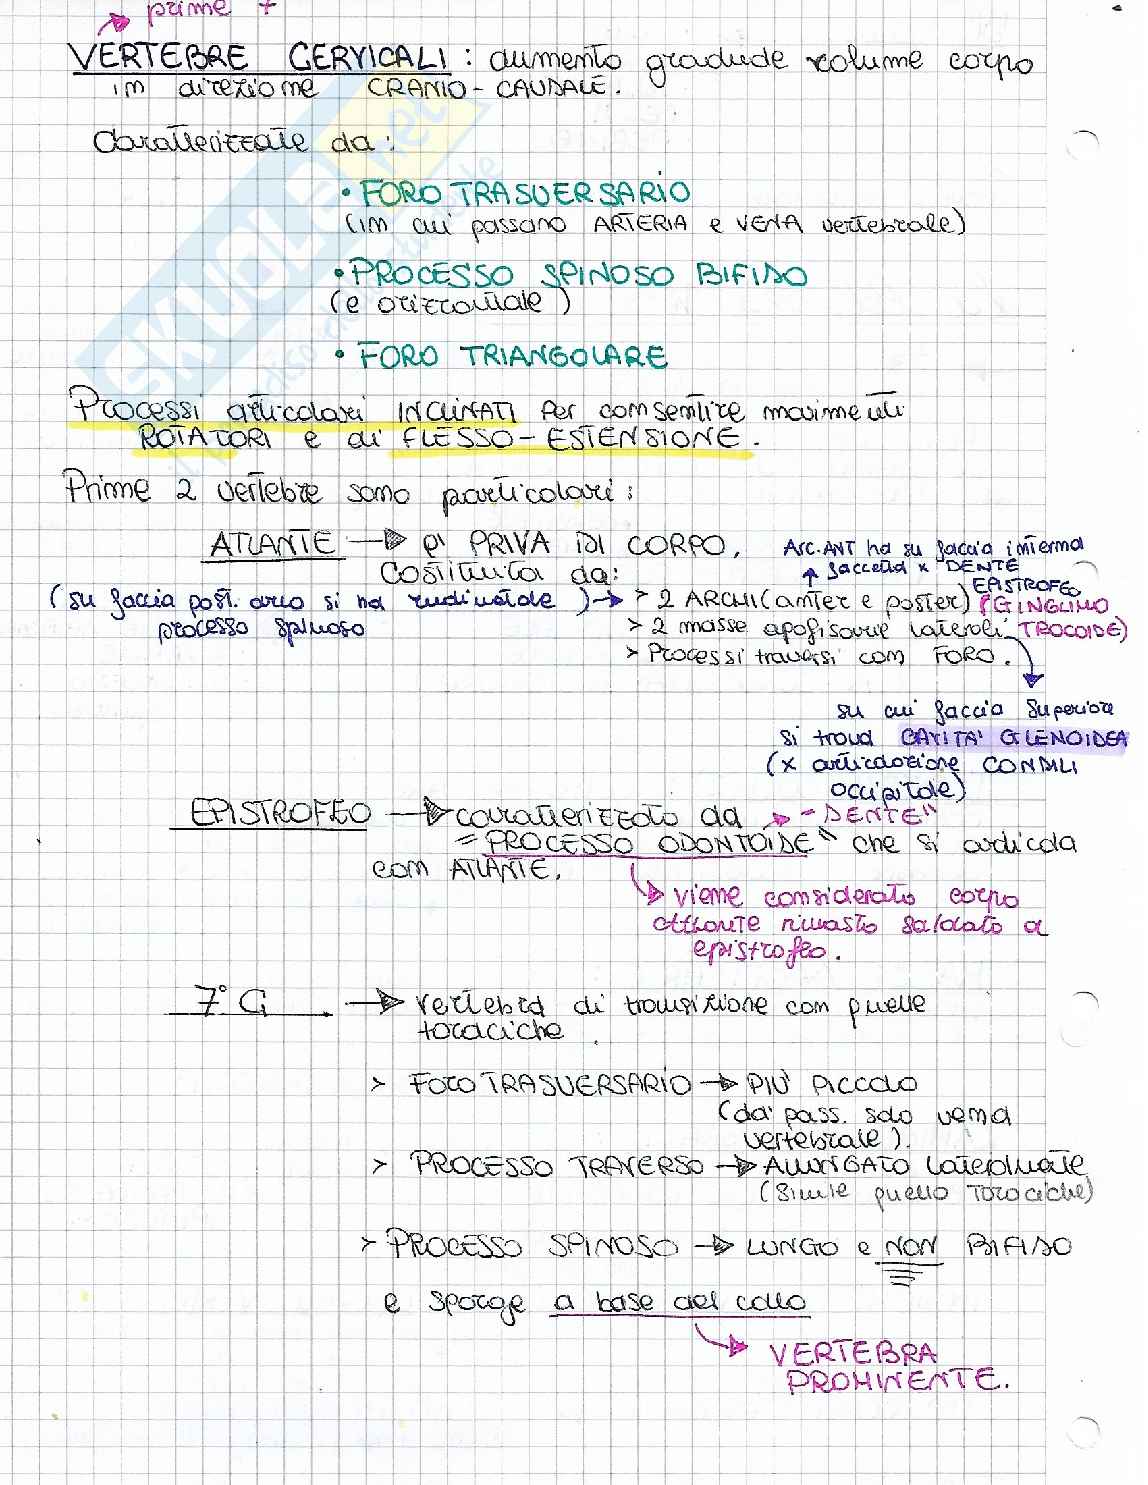 prime +
VERTEBRE CERVICALI : aumento graduale volume corpo
in direzione CRANIO-CAUDALE.
Caratterizzate da :
• FORO TRASVERSARIO
(in cui passano ARTERIA e VENA vertebrale)
• PROCESSO SPINOSO BIFIDO
(e orizzontale)
• FORO TRIANGOLARE
Processi articolari INCLINATI per consentire movimenti
ROTATORI e di FLESSO-ESTENSIONE.
Prime 2 vertebre sono particolari :
ATLANTE → è PRIVA DI CORPO.
Costituita da:
Arc.ANT ha su faccia interna
↑ faccetta x DENTE
EPISTROFEO
(su faccia post. arco si ha rudimentale) → > 2 ARCHI (anter e poster) (GINGLIMO
processo spinoso
> 2 masse apofisarie laterali TROCOIDE)
> Processi traversi con FORO.
su cui faccia superiore
si trova CAVITA' GLENOIDEA
(x articolazione CONDILI
occipitale)
EPISTROFEO → caratterizzato da → "DENTE"
"PROCESSO ODONTOIDE" che si articola
con ATLANTE.
→ viene considerato corpo
atlante rimasto saldato a
epistrofeo.
7° C → vertebra di transizione con quelle
toraciche.
> Foro TRASVERSARIO → PIU' PICCOLO
(dà pass. solo vena
vertebrale).
> PROCESSO TRAVERSO → ALLUNGATO lateralmente
(simile quello toraciche)
> PROCESSO SPINOSO → LUNGO e NON BIFIDO
e sporge a base del collo
→ VERTEBRA
PROMINENTE.
SKUOLA.net